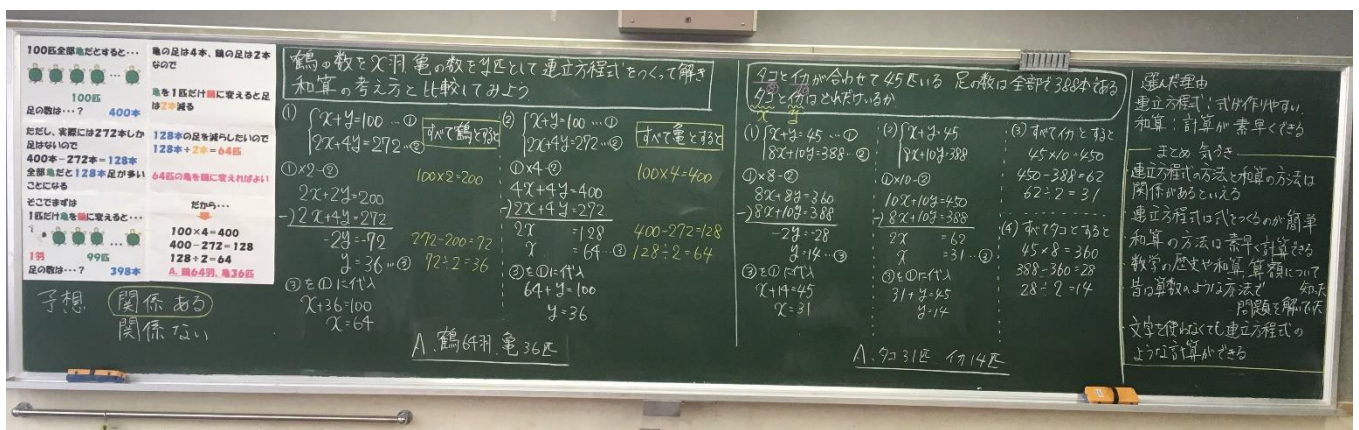 100匹全部亀だとすると・・・
100匹
足の数は・・・？ 400本
ただし、実際には272本しか
足はないので
400本－272本＝128本
全部亀だと128本足が多い
ことになる
そこでまずは
1匹だけ亀を鶴に変えると・・・
1羽 99匹
足の数は・・・？ 398本
亀の足は4本、鶴の足は2本
なので
亀を1匹だけ鶴に変えると足
は2本減る
128本の足を減らしたいので
128本÷2本＝64匹
64匹の亀を鶴に変えればよい
だから・・・
100×4＝400
400－272＝128
128÷2＝64
A. 鶴64羽、亀36匹
予想 関係ある
関係ない
鶴の数をx羽 亀の数をy匹として連立方程式をつくって解き
和算の考え方と比較してみよう
(1) x+y=100 …①
2x+4y=272 …②
①×2-②
2x+2y=200
-)2x+4y=272
-2y=-72
y=36 …③
③を①に代入
x+36=100
x=64
すべて鶴とすると
100×2=200
272-200=72
72÷2=36
(2) x+y=100 …①
2x+4y=272 …②
①×4-②
4x+4y=400
-)2x+4y=272
2x =128
x =64 …③
③を①に代入
64+y=100
y=36
すべて亀とすると
100×4=400
400-272=128
128÷2=64
A. 鶴64羽、亀36匹
タコとイカが合わせて45匹いる 足の数は全部で388本である
タコとイカはどれだけいるか
x y
(1) x+y=45 …①
8x+10y=388 …②
①×8-②
8x+8y=360
-)8x+10y=388
-2y=-28
y=14 …③
③を①に代入
x+14=45
x=31
(2) x+y=45
8x+10y=388
①×10-②
10x+10y=450
-)8x+10y=388
2x =62
x =31 …③
③を①に代入
31+y=45
y=14
(3) すべてイカとすると
45×10=450
450-388=62
62÷2=31
(4) すべてタコとすると
45×8=360
388-360=28
28÷2=14
A. タコ31匹 イカ14匹
選んだ理由
連立方程式：式が作りやすい
和算：計算が素早くできる
まとめ 気づき
連立方程式の方法と和算の方法は
関係があるといえる
連立方程式は式をつくるのが簡単
和算の方法は素早く計算できる
数学の歴史や和算、算額について
知れた
昔は算数のような方法で
問題を解いてた
文字を使わなくても連立方程式の
ような計算ができる